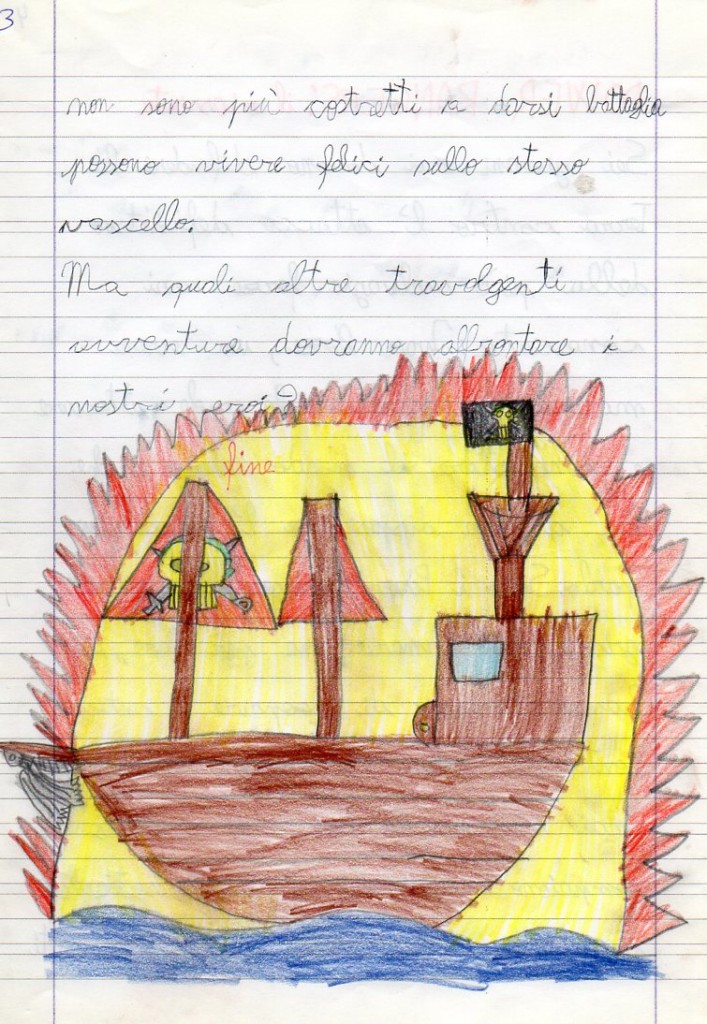 3
non sono più costretti a darsi battaglia
possono vivere felici sullo stesso
vascello.
Ma quali altre travolgenti
avventure dovranno affrontare i
nostri eroi?
fine